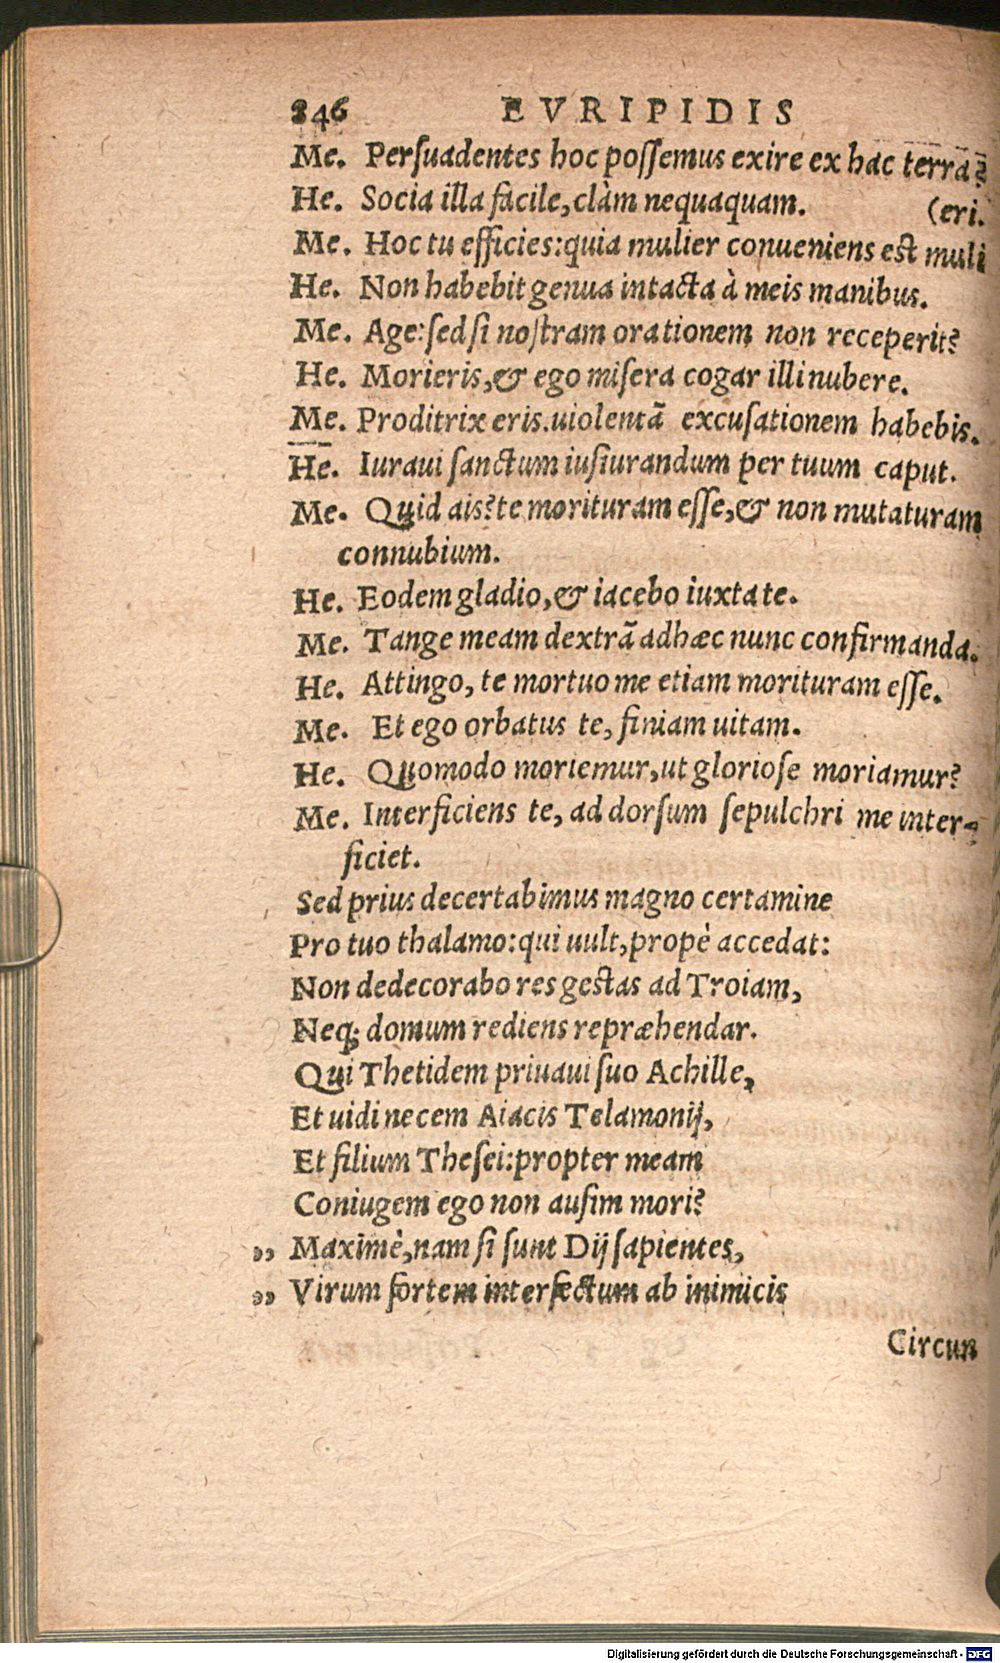 246 EVRIPIDIS
Me. Persuadentes hoc possemus exire ex hac terra?
He. Socia illa facile, clàm nequaquam. (eri.
Me. Hoc tu efficies: quia mulier conueniens est muli
He. Non habebit genua intacta à meis manibus.
Me. Age: sed si nostram orationem non receperit?
He. Morieris, & ego misera cogar illi nubere.
Me. Proditrix eris. uiolentā excusationem habebis.
He. Iuraui sanctum iusiurandum per tuum caput.
Me. Quid ais? te morituram esse, & non mutaturam
connubium.
He. Eodem gladio, & iacebo iuxta te.
Me. Tange meam dextrā ad hæc nunc confirmanda.
He. Attingo, te mortuo me etiam morituram esse.
Me. Et ego orbatus te, finiam uitam.
He. Quomodo moriemur, ut gloriose moriamur?
Me. Interficiens te, ad dorsum sepulchri me inter-
ficiet.
Sed prius decertabimus magno certamine
Pro tuo thalamo: qui uult, propè accedat:
Non dedecorabo res gestas ad Troiam,
Neq; domum rediens repræhendar.
Qui Thetidem priuaui suo Achille,
Et uidi necem Aiacis Telamonij,
Et filium Thesei: propter meam
Coniugem ego non ausim mori?
„ Maximè, nam si sunt Dij sapientes,
„ Virum fortem interfectum ab inimicis
Circun
Digitalisierung gefördert durch die Deutsche Forschungsgemeinschaft - DFG